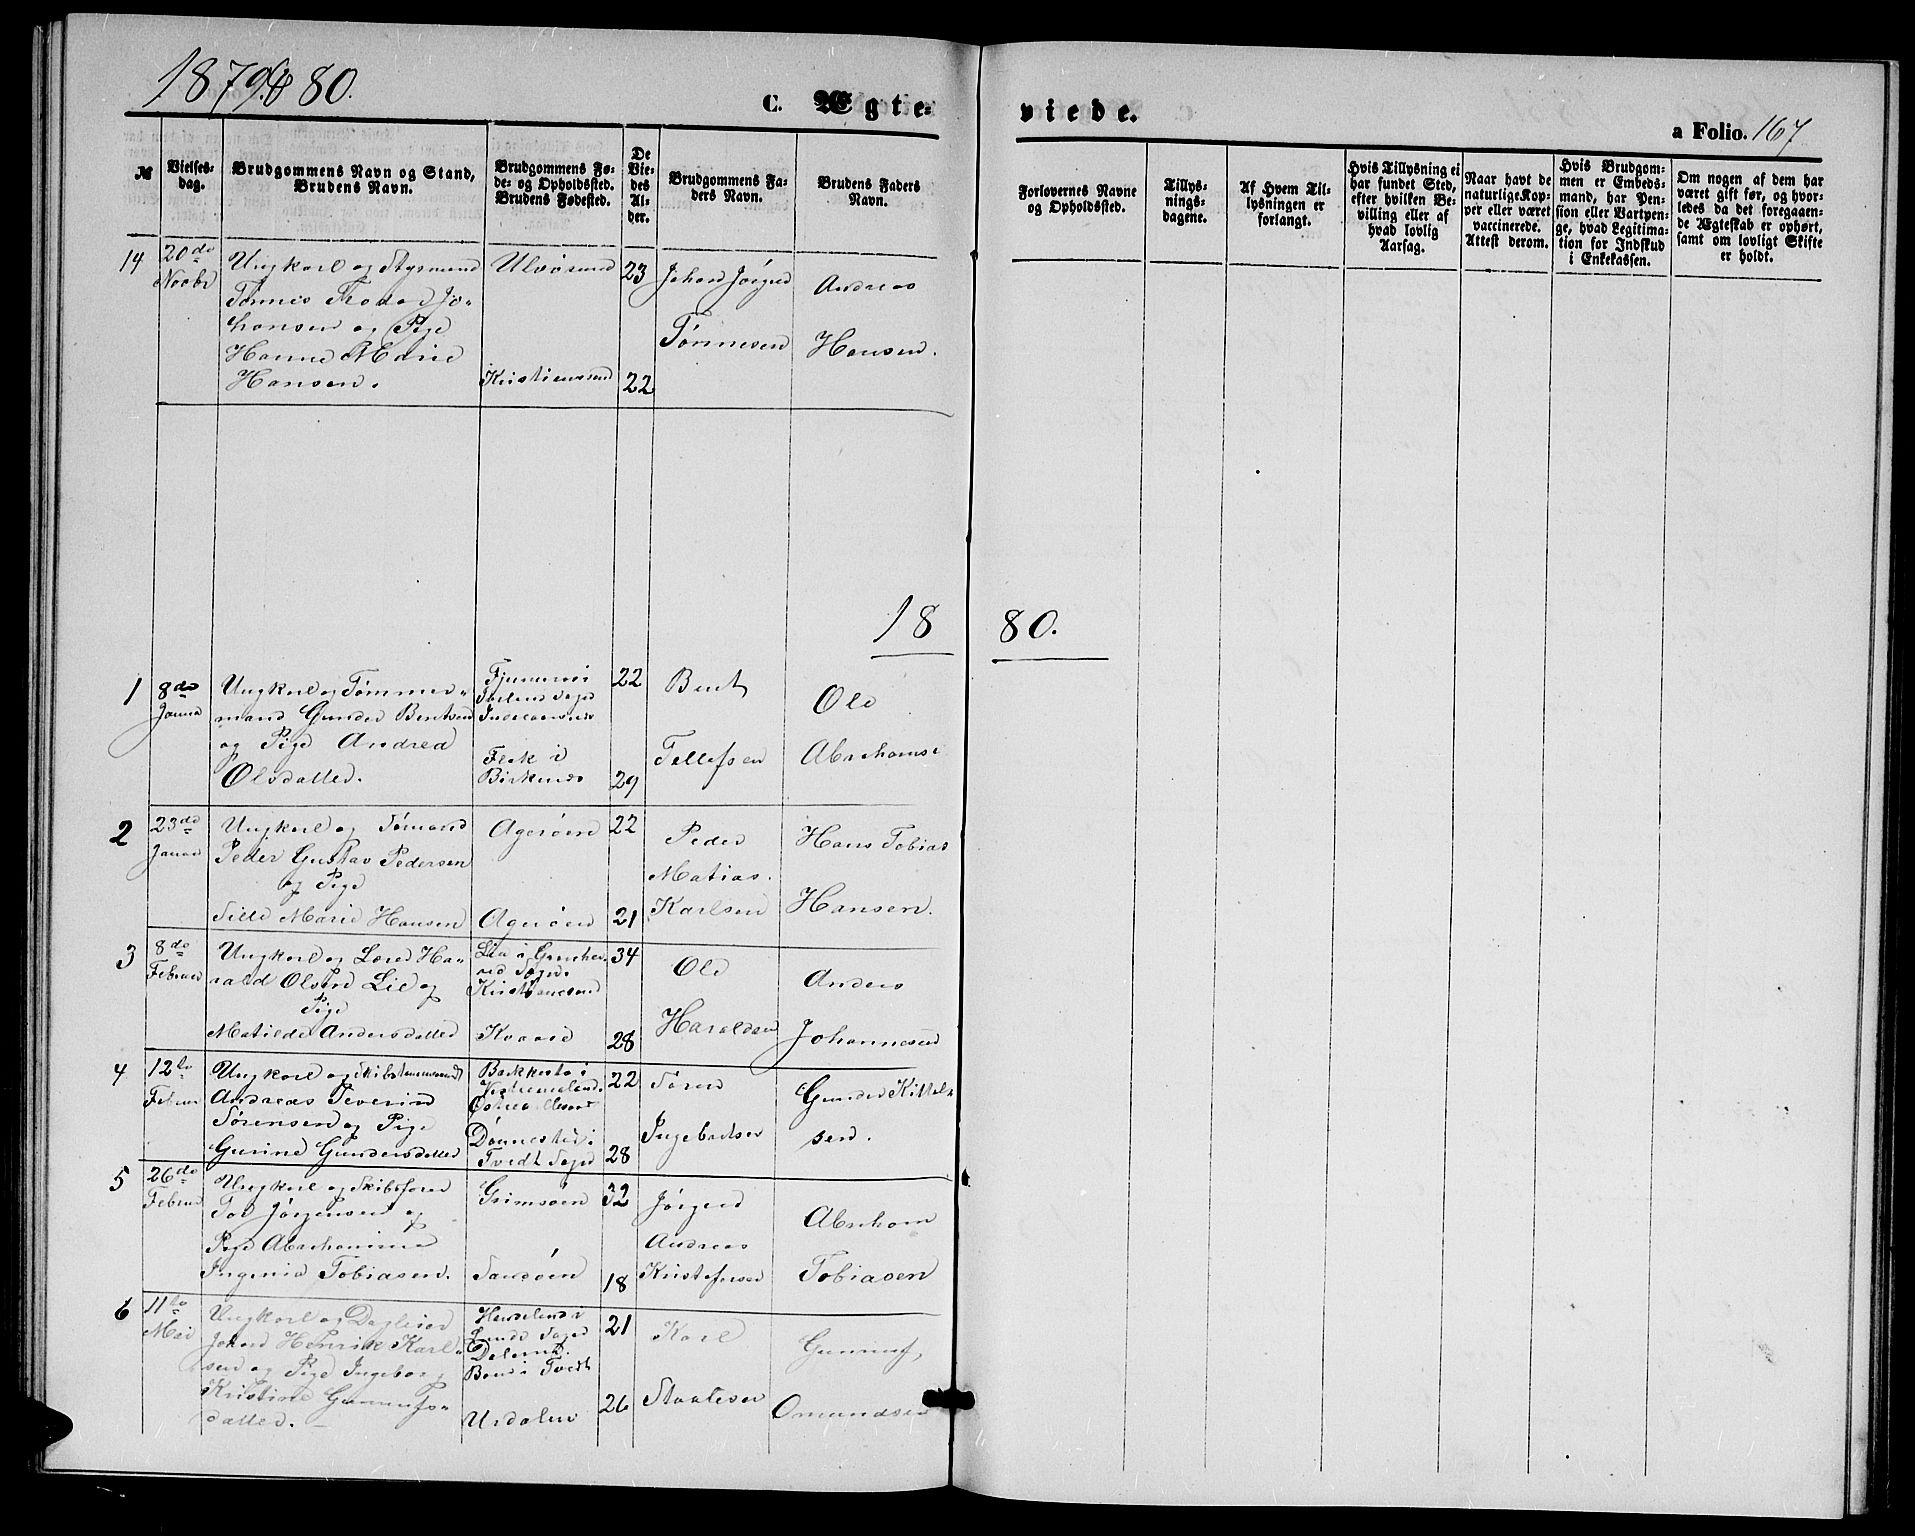 1879 & 80.
C. Ægte=
viede.
a Folio. 167
№
Vielses-
dag.
Brudgommens Navn og Stand,
Brudens Navn.
Brudgommens Fø-
de- og Opholdssted.
Brudens Fødested.
De
Vie-
des
Al-
der.
Brudgommens Fa-
ders Navn.
Brudens Faders
Navn.
Forlovernes Navne
og Opholdssted.
Tillys-
nings-
dagene.
Af Hvem Til-
lysningen er
forlangt.
Hvis Tillysning ei
har fundet Sted,
efter hvilken Be-
villing eller af
hvad lovlig
Aarsag.
Naar havt de
naturlige Kop-
per eller været
vaccinerede.
Attest derom.
Hvis Brudgom-
men er Embeds-
mand, har Pen-
sion eller Vartpen-
ge, hvad Legitima-
tion for Indskud
i Enkekassen.
Om nogen af dem har
været gift før, og hvor-
ledes da det foregaaen-
de Ægteskab er ophørt,
samt om lovligt Skifte
er holdt.
14
20de
Novbr
Ungkarl og Styrmand
Tønnes Jo-
hansen og Pige
Hanne Marie
Hansen.
Ulvøsund
Kristianssand
23
22
Johan Jørgen
Tønnesen
Andreas
Hansen.
1880.
1
8de
Janua
Ungkarl og Tømmer-
mand Gunder Bentsen
og Pige Andrea
Olsdatter.
Sogn
i
Birkenes
22
29
Bent
Tellefsen
Ole
Abrahams
2
23de
Janua
Ungkarl og Sømand
Peder Gustav Pedersen
og Pige
Sille Marie Hansen
Agerøen
Agerøen
22
21
Peder
Matias
Karlsen
Hans Tobias
Hansen.
3
8de
Februar
Ungkarl og Ha-
rald Olsen Lie og
Pige
Matilde Andersdatter
Lia i
Sogn.
Kristianssand
Kvaase
34
28
Ole
Haraldsen
Anders
Johannesen
4
12te
Februar
Ungkarl og Skibstømmermand
Andreas Severin
Sørensen og Pige
Gurine Gundersdatter
i
Dønnestad i
Tvedt Sogn
22
28
Søren
Ingebretsen
Gunder Kittel-
sen.
5
26de
Februar
Ungkarl og Skibsfører
Tor Jørgensen og
Pige Abrahamine
Ingenia Tobiasen.
Grimsøen
Randøen
32
18
Jørgen
Andreas
Kristofersen
Abraham
Tobiasen
6
11te
Mai
Ungkarl og Dagleier
Johan Henrik Karl-
sen og Pige Ingebor
Kristine Gunnufs-
datter.
i
Sogn
i Tvedt
Urdalen
21
26
Karl
Staalesen
Gunnuf
Omundsen